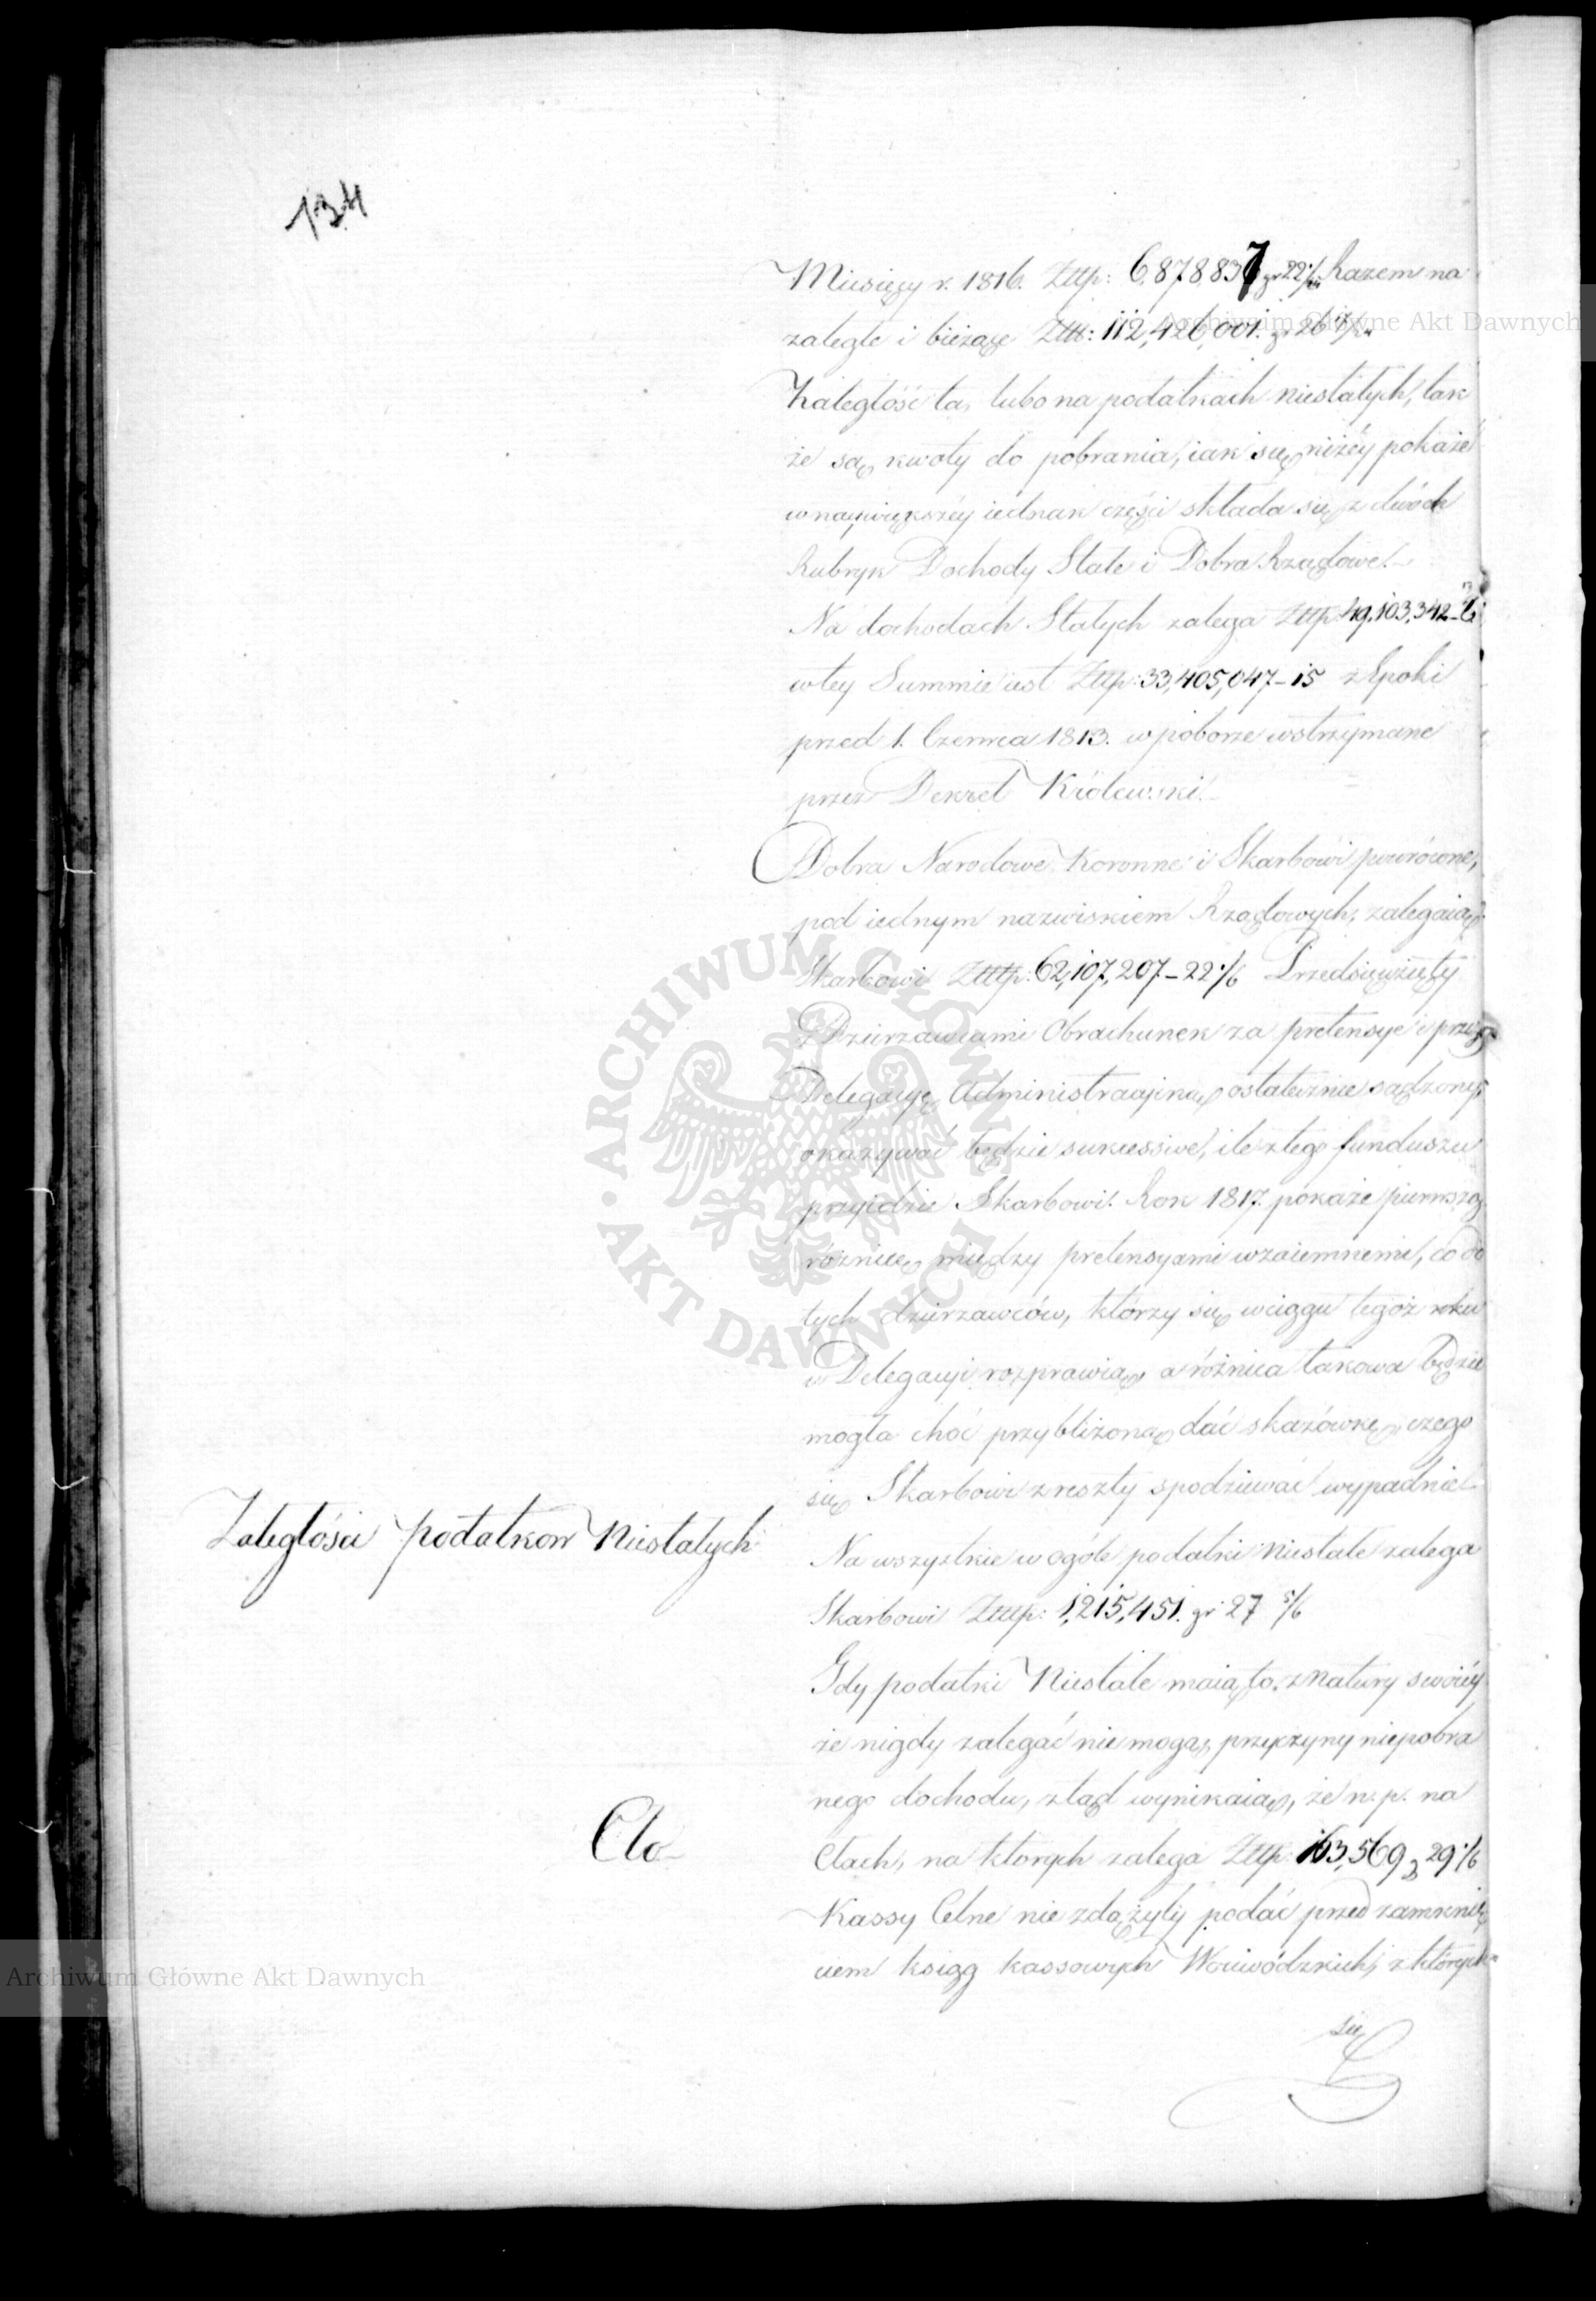 134
Miesięcy r. 1816. Złtp: 6,878,837 gr 22 1/6 Razem na
zaległe i bieżące Złtt: 112,426,001. gr 26
Zaległość ta, lubo na podatkach niestałych, tak
że są kwoty do pobrania, iak się niżéy pokaże
w naywiększéy iednak części składa się z dwóch
Rubryk Dochody Stałe i Dobra Rządowe.
Na dochodach Stałych zalega Złtp: 49,103,342
w tey Summie iest Złtp: 33,405,047-15 z Epoki
przed 1. Czerwca 1813. w poborze wstrzymane
przez Dekret Królewski.
Dobra Narodowe Koronne i Skarbowi powrócone,
pod iednym nazwiskiem Rządowych, zalegaią
Skarbowi Złttp: 62,107,207-22 1/6 Przedsięwzięty
z Dzierzawcami Obrachunek za pretensye i przez
Delegacyę Administracyiną ostatecznie sądzony,
okazywać będzie sukcessive, ile z tego funduszu
przyidzie Skarbowi. Rok 1817. pokaże pierwszą
różnicę między pretensyami wzaiemnemi, co do
tych dzierzawców, którzy się w ciągu tegoż roku
w Delegacyi rozprawią, a różnica takowa będzie
mogła choć przybliżoną dać skazówkę, czego
się Skarbowi z reszty spodziewać wypadnie.
Zaległości podatkow Niestałych
Na wszystkie w ogóle podatki niestałe zalega
Skarbowi Złttp: 1,215,451. gr 27 5/6
Gdy podatki Niestałe maią to, z natury swoiéy
że nigdy zalegać nie mogą, przyczyny niepobra
nego dochodu, ztąd wynikaią, że n.p. na
Cło
Cłach, na ktorych zalega Złtp: 163,569, 29 1/6
Kassy Celne nie zdążyły podać przed zamknię
ciem ksiąg kassowych Woiewódzkich, z których
się
Archiwum Główne Akt Dawnych
Archiwum Główne Akt Dawnych
ARCHIWUM GŁÓWNE AKT DAWNYCH